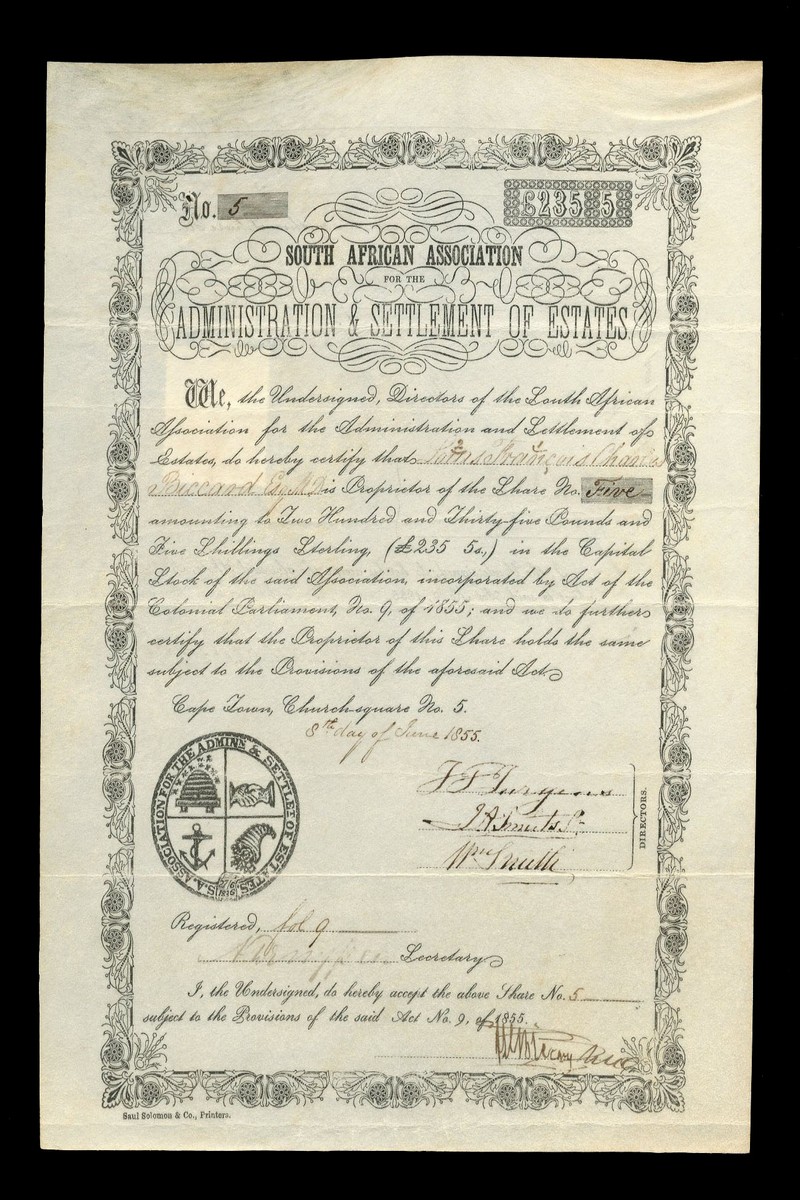 No. 5
£235 5
SOUTH AFRICAN ASSOCIATION
FOR THE
ADMINISTRATION & SETTLEMENT OF ESTATES.
We, the Undersigned, Directors of the South African
Association for the Administration and Settlement of
Estates, do hereby certify that François Charles
Biccard Esq. M.D. is Proprietor of the Share No. Five
amounting to Two Hundred and Thirty-five Pounds and
Five Shillings Sterling, (£235 5s.,) in the Capital
Stock of the said Association, incorporated by Act of the
Colonial Parliament, No. 9, of 1855; and we do further
certify that the Proprietor of this Share holds the same
subject to the Provisions of the aforesaid Act.
Cape Town, Church-square No. 5.
8th day of June 1855.
S.A. ASSOCIATION FOR THE ADMINN & SETTLET OF ESTATES
Wm Smith
DIRECTORS.
Registered, fol 9
Secretary
I, the Undersigned, do hereby accept the above Share No. 5
subject to the Provisions of the said Act No. 9, of 1855.
Saul Solomon & Co., Printers.